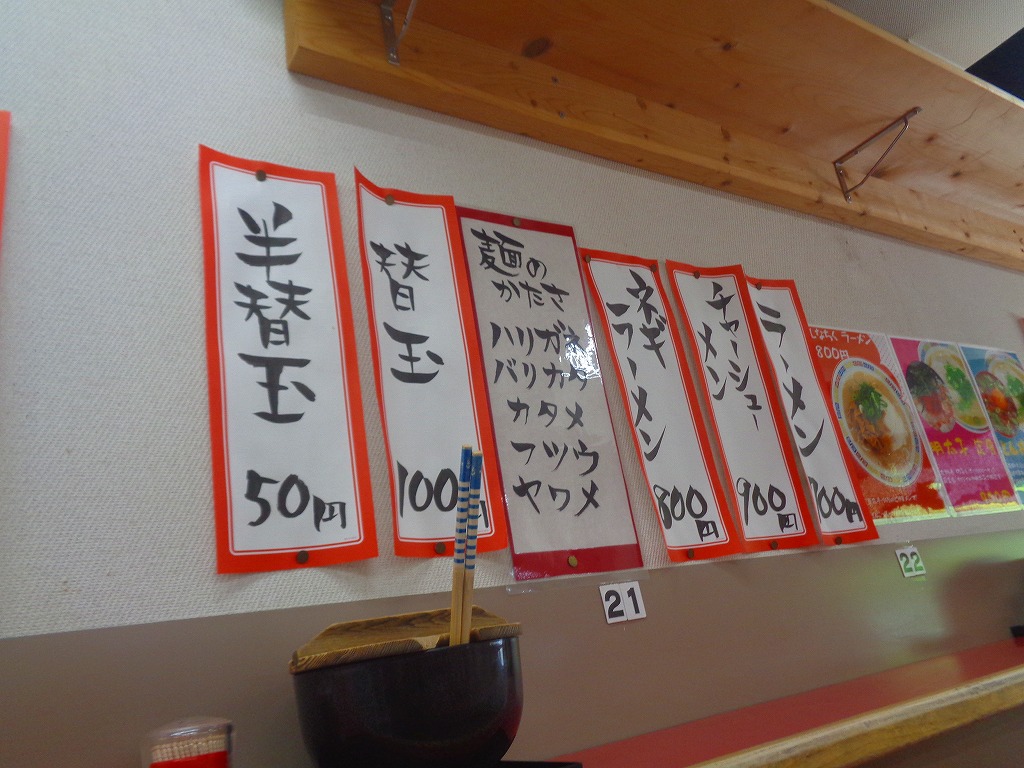 半替玉
50円
替玉
100円
麺の
かたさ
ハリガネ
バリカタ
カタメ
フツウ
ヤワメ
ネギ
ラーメン
800円
チャーシュー
メン
900円
ラーメン
700円
しなちくラーメン
800円
明太子
21
22